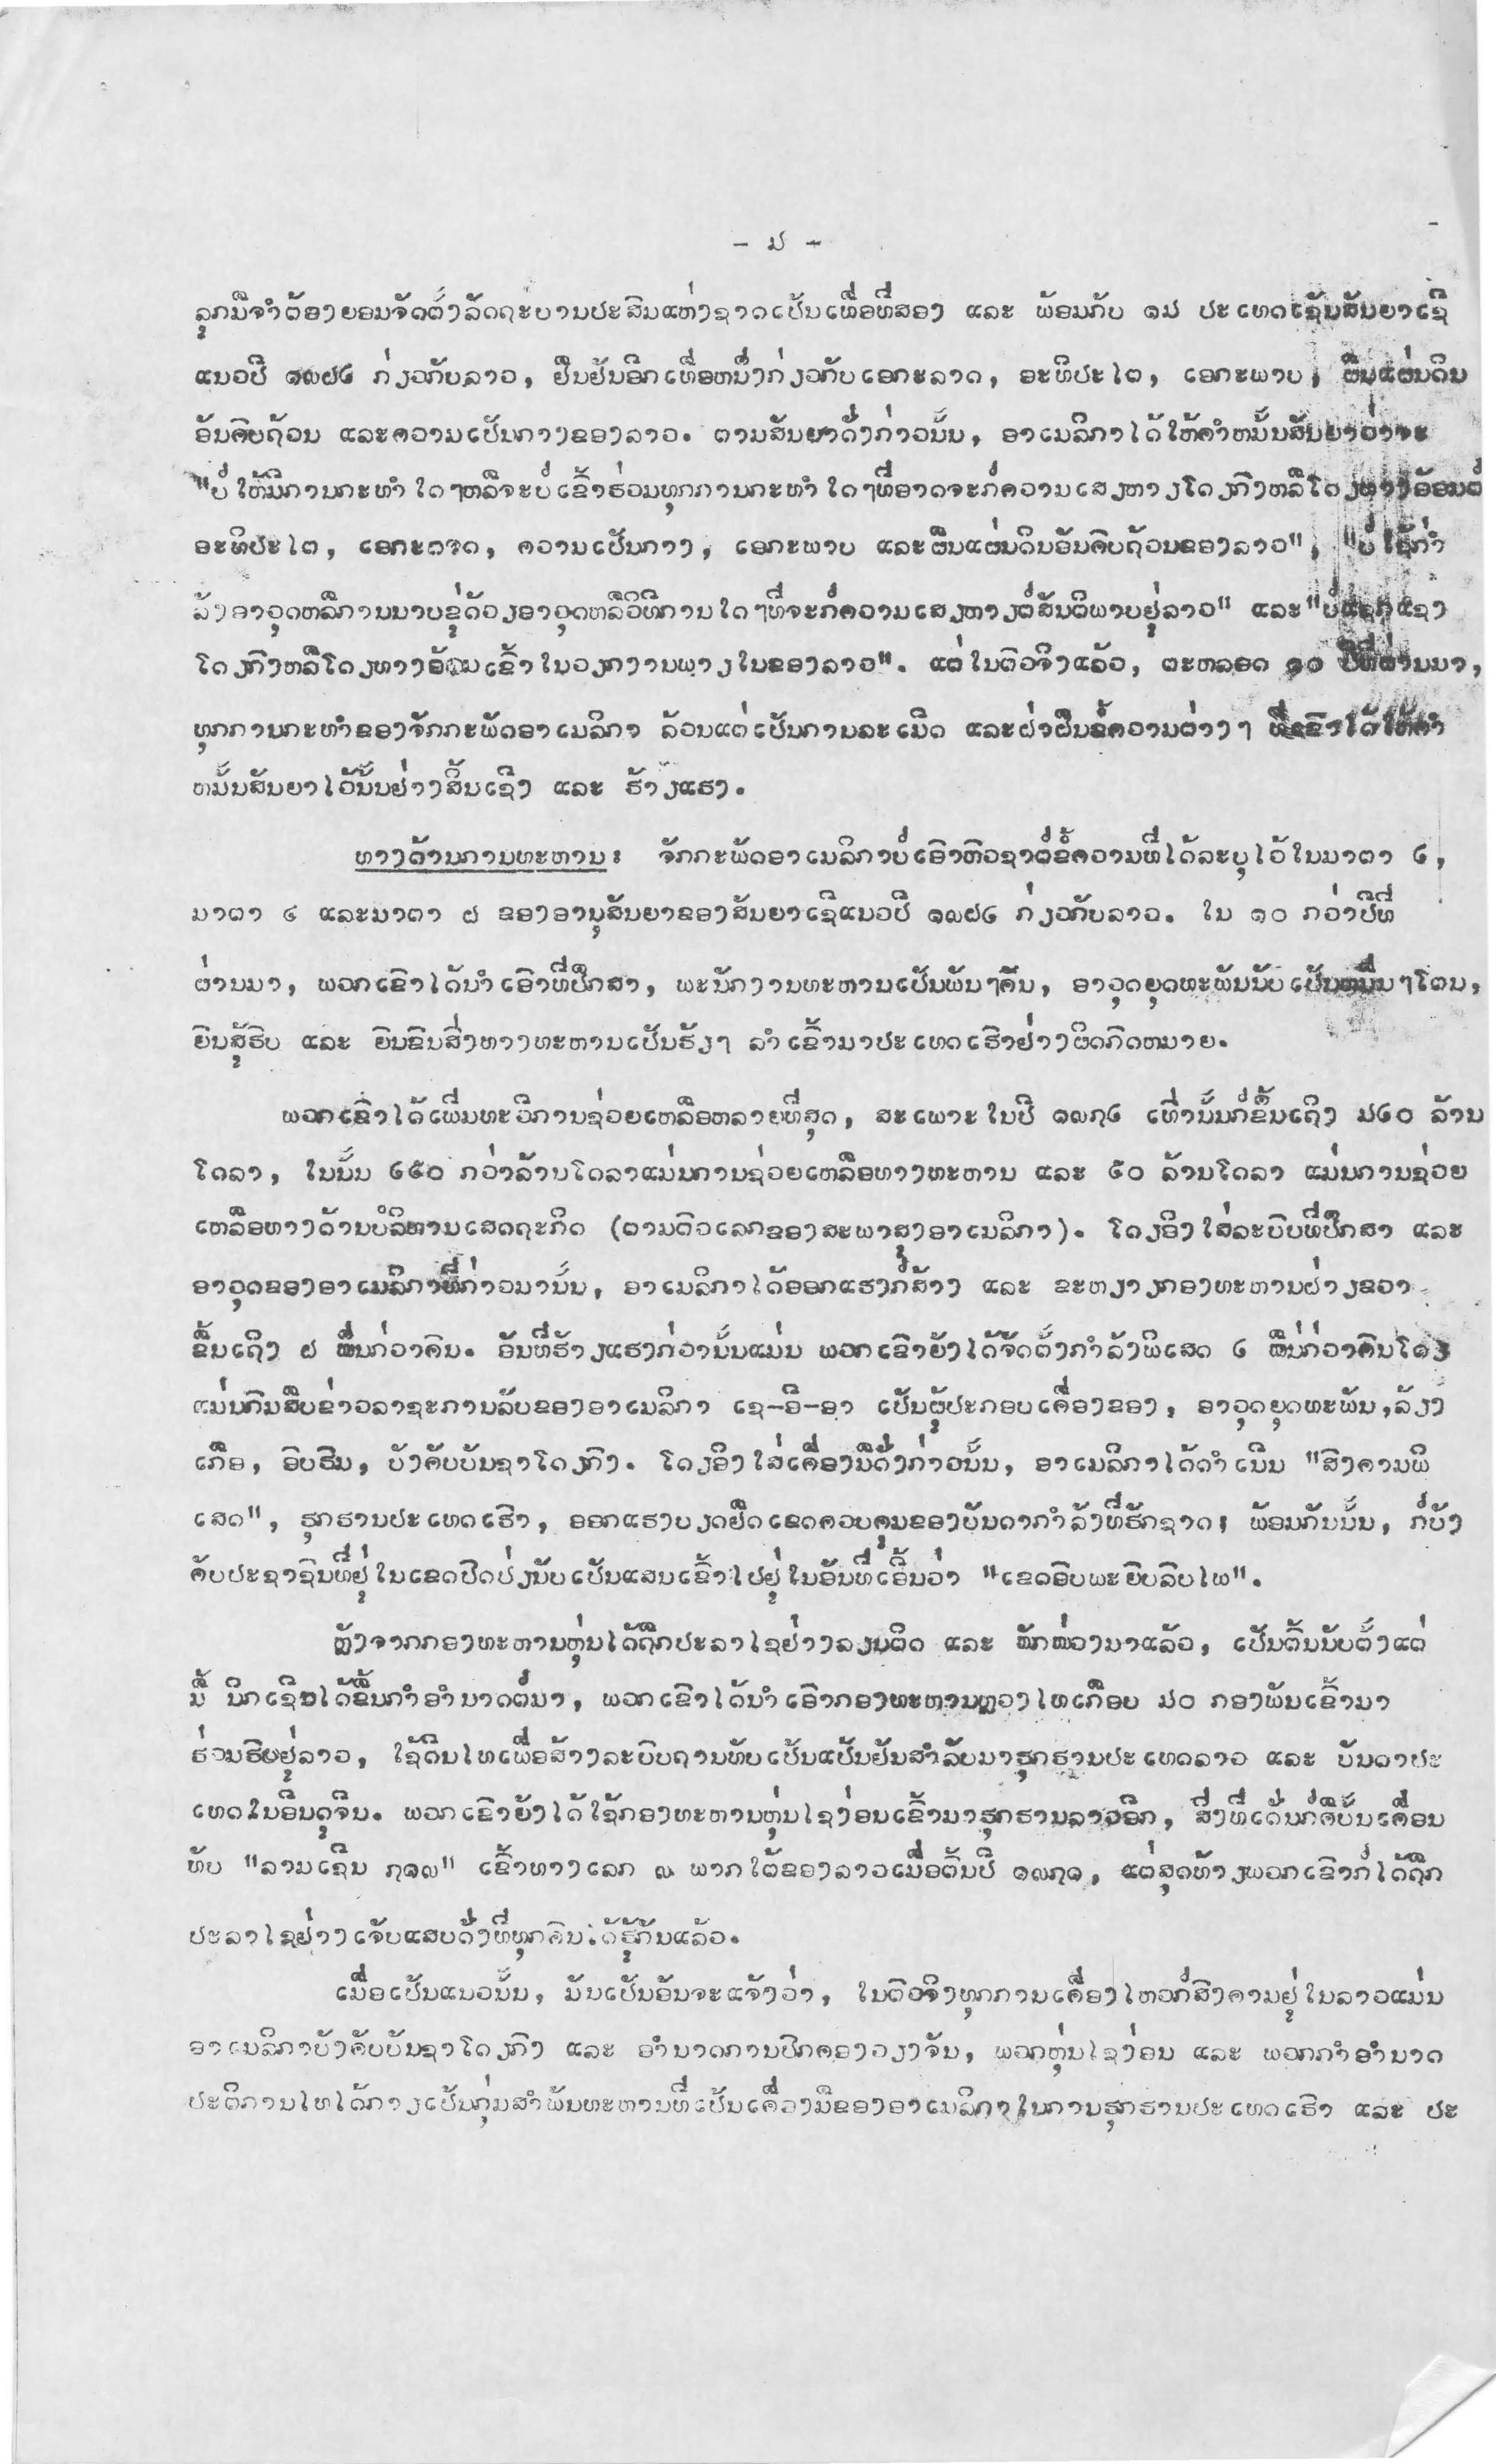 - ໓ -
ລຸກມືຈຳຕ້ອງຍອມຈັດຕັ້ງລັດຖະບານປະສົມແຫ່ງຊາດເປັນເທື່ອທີ່ສອງ ແລະ ພ້ອມກັບ ໑໓ ປະເທດເຊັນສັນຍາເຊີ
ແນວປີ ໑໙໖໒ ກ່ຽວກັບລາວ, ຢືນຢັນອີກເທື່ອຫນຶ່ງກ່ຽວກັບເອກະລາດ, ອະທິປະໄຕ, ເອກະພາບ, ຜືນແຜ່ນດິນ
ອັນຄົບຖ້ວນ ແລະຄວາມເປັນກາງຂອງລາວ. ຕາມສັນຍາດັ່ງກ່າວນັ້ນ, ອາເມລິກາໄດ້ໃຫ້ຄຳຫມັ້ນສັນຍາວ່າຈະ
"ບໍ່ໃຫ້ມີການກະທຳໃດໆຫລືຈະບໍ່ເຂົ້າຮ່ວມທຸກການກະທຳໃດໆທີ່ອາດຈະກໍ່ຄວາມເສຽຫາຽໂດຽກົງຫລືໂດຽທາງອ້ອມຕໍ່
ອະທິປະໄຕ, ເອກະຣາດ, ຄວາມເປັນກາງ, ເອກະພາບ ແລະຜືນແຜ່ນດິນອັນຄົບຖ້ວນຂອງລາວ", "ບໍ່ໃຊ້ກຳ
ລັງອາວຸດຫລືການນາບຂູ່ດ້ວຽອາວຸດຫລືວິທີການໃດໆທີ່ຈະກໍ່ຄວາມເສຽຫາຽຕໍ່ສັນຕິພາບຢູ່ລາວ" ແລະ"ບໍ່ແຊກແຊງ
ໂດຽກົງຫລືໂດຽທາງອ້ອມເຂົ້າໃນວຽກງານພາຽໃນຂອງລາວ". ແຕ່ໃນຕົວຈິງແລ້ວ, ຕະຫລອດ ໑໐ ປີທີ່ຜ່ານມາ,
ທຸກການກະທຳຂອງຈັກກະພັດອາເມລິກາ ລ້ວນແຕ່ເປັນການລະເມີດ ແລະຝ່າຝືນຂໍ້ຄວາມຕ່າງໆ ທີ່ເຂົາໄດ້ໃຫ້ຄຳ
ຫມັ້ນສັນຍາໄວ້ນັ້ນຢ່າງສິ້ນເຊີງ ແລະ ຮ້າຽແຮງ.
ທາງດ້ານການທະຫານ: ຈັກກະພັດອາເມລິກາບໍ່ເອົາຫົວຊາຕໍ່ຂໍ້ຄວາມທີ່ໄດ້ລະບຸໄວ້ໃນມາຕາ ໒,
ມາຕາ ໔ ແລະມາຕາ ໖ ຂອງອານຸສັນຍາຂອງສັນຍາເຊີແນວປີ ໑໙໖໒ ກ່ຽວກັບລາວ. ໃນ ໑໐ ກວ່າປີທີ່
ຜ່ານມາ, ພວກເຂົາໄດ້ນຳເອົາທີ່ປຶກສາ, ພະນັກງານທະຫານເປັນພັນໆຄົນ, ອາວຸດຍຸດທະພັນນັບເປັນຫມື່ນໆໂຕນ,
ຍົນສູ້ຮົບ ແລະ ຍົນຂົນສົ່ງທາງທະຫານເປັນຮ້ຽໆ ລຳເຂົ້າມາປະເທດເຮົາຢ່າງຜິດກົດຫມາຍ.
ພວກເຂົາໄດ້ເພີ່ມທະວີການຊ່ອຍເຫລືອຫລາຍທີ່ສຸດ, ສະເພາະໃນປີ ໑໙໗໒ ເທົ່ານັ້ນກໍ່ຂຶ້ນເຖິງ ໓໒໐ ລ້ານ
ໂດລາ, ໃນນັ້ນ ໒໕໐ ກວ່າລ້ານໂດລາແມ່ນການຊ່ອຍເຫລືອທາງທະຫານ ແລະ ໕໐ ລ້ານໂດລາ ແມ່ນການຊ່ອຍ
ເຫລືອທາງດ້ານບໍລິຫານເສດຖະກິດ (ຕາມຕົວເລກຂອງສະພາສູງອາເມລິກາ). ໂດຽອິງໃສ່ລະບົບທີ່ປຶກສາ ແລະ
ອາວຸດຂອງອາເມລິກາທີ່ກ່າວມານັ້ນ, ອາເມລິກາໄດ້ອອກແຮງກໍ່ສ້າງ ແລະ ຂະຫຽາຽກອງທະຫານຝ່າຽຂວາ
ຂຶ້ນເຖິງ ໖ ຫື່ມກ່ວາຄົນ. ອັນທີ່ຮ້າຽແຮງກ່ວານັ້ນແມ່ນ ພວກເຂົາຍັງໄດ້ຈັດຕັ້ງກຳລັງພິເສດ ໒ ຫມື່ນກ່ວາຄົນໂດຽ
ແມ່ນກົມສືບຂ່າວລາຊະການລັບຂອງອາເມລິກາ ເຊ-ອີ-ອາ ເປັນຜູ້ປະກອບເຄື່ອງຂອງ, ອາວຸດຍຸດທະພັນ,ລ້ຽງ
ເກືອ, ອົບຮົມ, ບັງຄັບບັນຊາໂດຽກົງ. ໂດຽອິງໃສ່ເຄື່ອງມືດັ່ງກ່າວນັ້ນ, ອາເມລິກາໄດ້ດຳເນີນ "ສົງຄາມພິ
ເສດ", ຮຸກຮານປະເທດເຮົາ, ອອກແຮງບຽດຢຶດເຂດຄວບຄຸມຂອງບັນດາກຳລັງທີ່ຮັກຊາດ; ພ້ອມກັນນັ້ນ, ກໍ່ບັງ
ຄັບປະຊາຊົນທີ່ຢູ່ໃນເຂດປົດປ່ຽນັບເປັນແສນເຂົ້າໄປຢູ່ໃນອັນທີ່ເອີ້ນວ່າ "ເຂດອົບພະຍົບລົບໄພ".
ຫຼັງຈາກກອງທະຫານຫຸ່ນໄດ້ຖືກປະລາໄຊຢ່າງລຽນຕິດ ແລະ ໜັກໜ່ວງມາແລ້ວ, ເປັນຕົ້ນນັບຕັ້ງແຕ່
ມື້ ນິກເຊີນໄດ້ຂຶ້ນກຳອຳນາດຕໍ່ມາ, ພວກເຂົາໄດ້ນຳເອົາກອງທະຫານຫຼວງໄທເກືອບ ໓໐ ກອງພັນເຂົ້າມາ
ຮ່ວມຮົບຢູ່ລາວ, ໃຊ້ດິນໄທເພື່ອສ້າງລະບົບຖານທັບເປັນແປ້ນຢັນສຳລັບມາຮຸກຮານປະເທດລາວ ແລະ ບັນດາປະ
ເທດໃນອິນດູຈີນ. ພວກເຂົາຍັງໄດ້ໃຊ້ກອງທະຫານຫຸ່ນໄຊງ່ອນເຂົ້າມາຮຸກຮານລາວອີກ, ສິ່ງທີ່ເດັ່ນກໍ່ຄືບັ້ນເຄື່ອນ
ທັບ "ລາມເຊີນ ໗໑໙" ເຂົ້າທາງເລກ ໙ ພາກໃຕ້ຂອງລາວເມື່ອຕົ້ນປີ ໑໙໗໑, ແຕ່ສຸດທ້າຽພວກເຂົາກໍ່ໄດ້ຖືກ
ປະລາໄຊຢ່າງເຈັບແສບດັ່ງທີ່ທຸກຄົນໄດ້ຮູ້ກັນແລ້ວ.
ເມື່ອເປັນແນວນັ້ນ, ມັນເປັນອັນຈະແຈ້ງວ່າ, ໃນຕົວຈິງທຸກການເຄື່ອງໄຫວກໍ່ສົງຄາມຢູ່ໃນລາວແມ່ນ
ອາເມລິກາບັງຄັບບັນຊາໂດຽກົງ ແລະ ອຳນາດການປົກຄອງວຽງຈັນ, ພວກຫຸ່ນໄຊງ່ອນ ແລະ ພວກກຳອຳນາດ
ປະຕິການໄທໄດ້ກາຽເປັນກຸ່ມສຳພັນທະຫານທີ່ເປັນເຄື່ອງມືຂອງອາເມລິກາໃນການຮຸກຮານປະເທດເຮົາ ແລະ ປະ